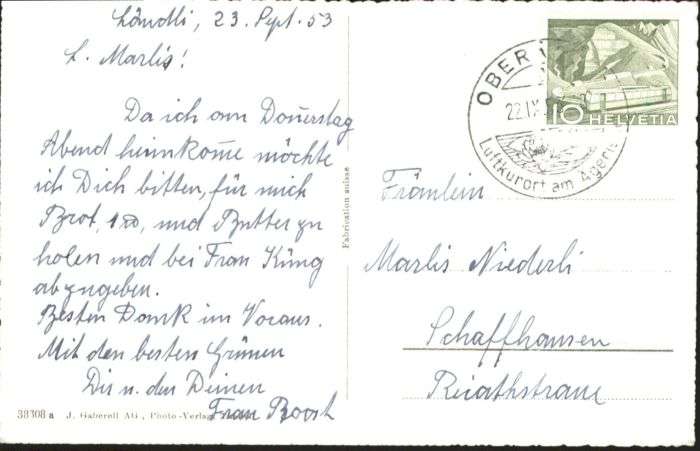 Ländli, 23. Sept. 53
L. Marlis!
Da ich am Donnerstag
Abend heimkome möchte
ich Dich bitten, für mich
Brot, und Butter zu
holen und bei Frau Küng
abzugeben.
Besten Dank im Voraus.
Mit den besten Grüssen
Dir u. den Deinen
Frau Boost
38308 a J. Gaberell AG., Photo-Verlag
Fabrication suisse
OBER
22.IX.
Luftkurort am Ägeri
10
HELVETIA
Fräulein
Marlis Niederli
Schaffhausen
Rietstrasse